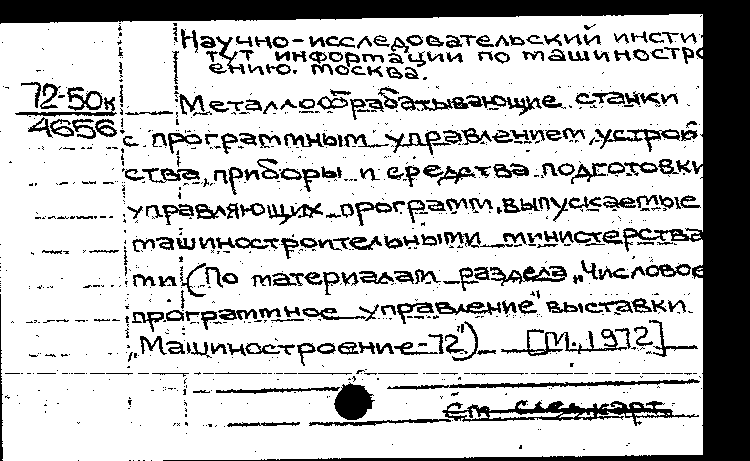 Научно-исследовательский инсти-
тут информации по машиностро
ению. Москва.
72-50к
4656
Металлообрабатывающие станки
с программным управлением, устрой-
ства, приборы и средства подготовки
управляющих программ, выпускаемые
машиностроительными министерства
ми (По материалам раздела „Числовое
программное управление" выставки
„Машиностроение-72") [М., 1972]
см след. карт.